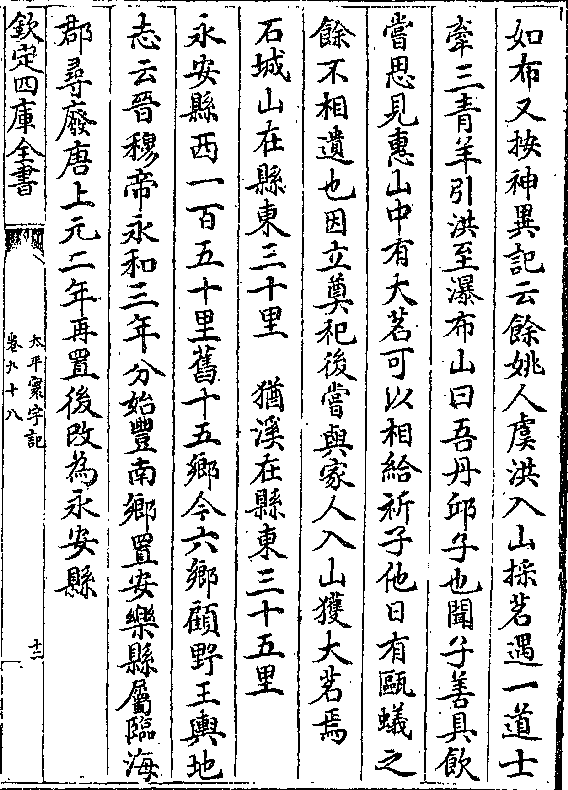 如布又按神異記云餘姚人虞洪入山採茗遇一道士
牽三青羊引洪至瀑布山曰吾丹邱子也聞子善具飲
嘗思見惠山中有大茗可以相給祈子他日有甌蟻之
餘不相遺也因立奠祀後嘗與家人入山獲大茗焉
石城山在縣東三十里　猶溪在縣東三十五里
永安縣西一百五十里舊十五鄉今六鄉顧野王輿地
志云晉穆帝永和三年分始豐南鄉置安樂縣屬臨海
郡尋廢唐上元二年再置後改為永安縣
欽定四庫全書
太平寰宇記
卷九十八
十二